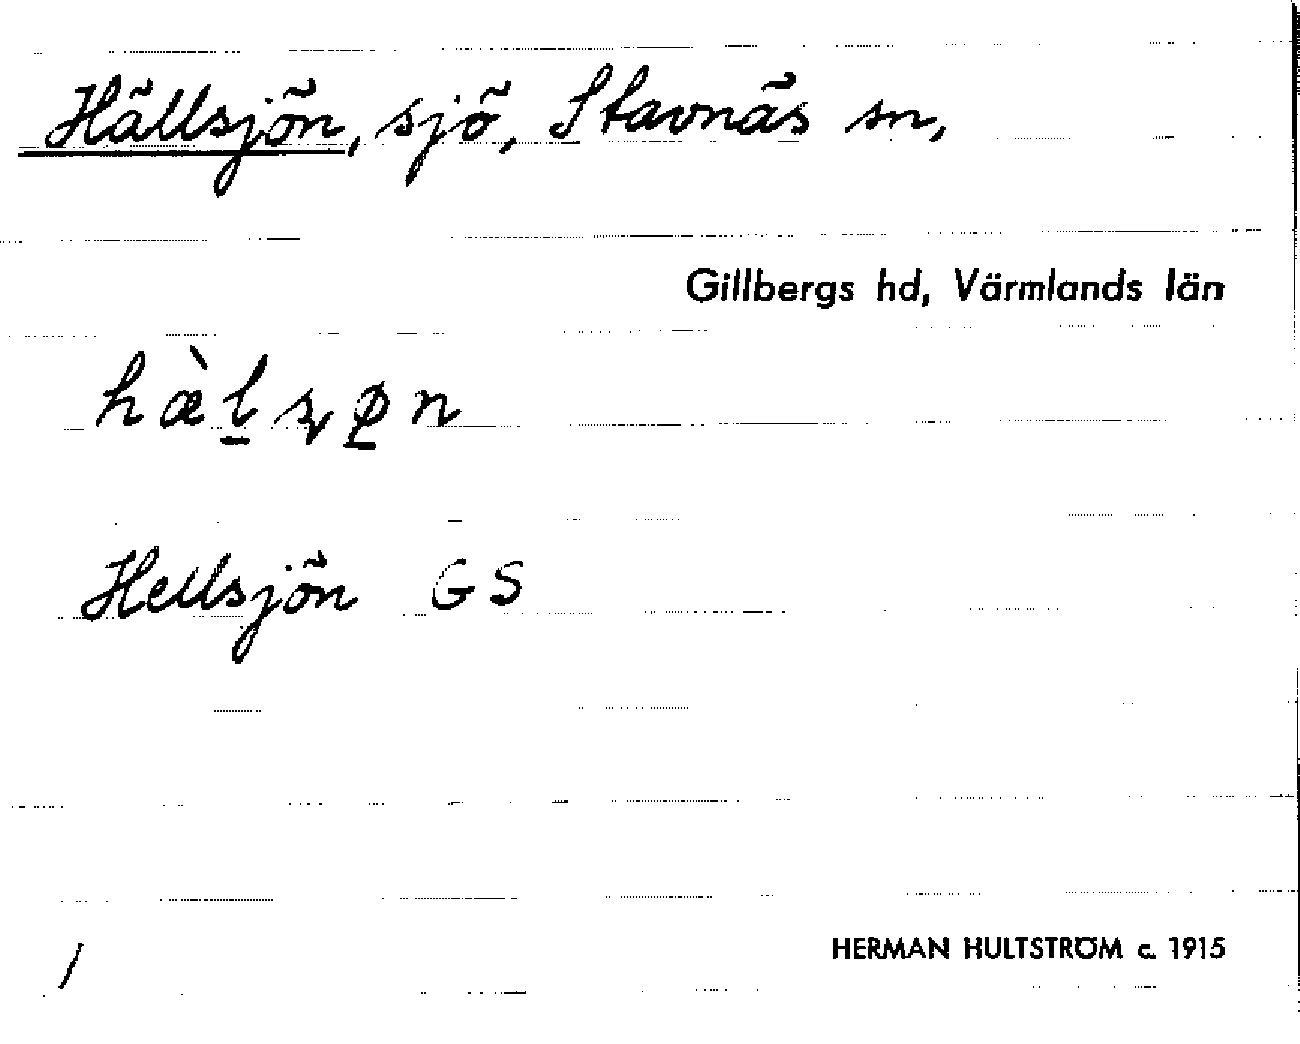 Hällsjön, sjö, Stavnäs sn,
Gillbergs hd, Värmlands län
Hellsjön GS
HERMAN HULTSTRÖM c. 1915
/